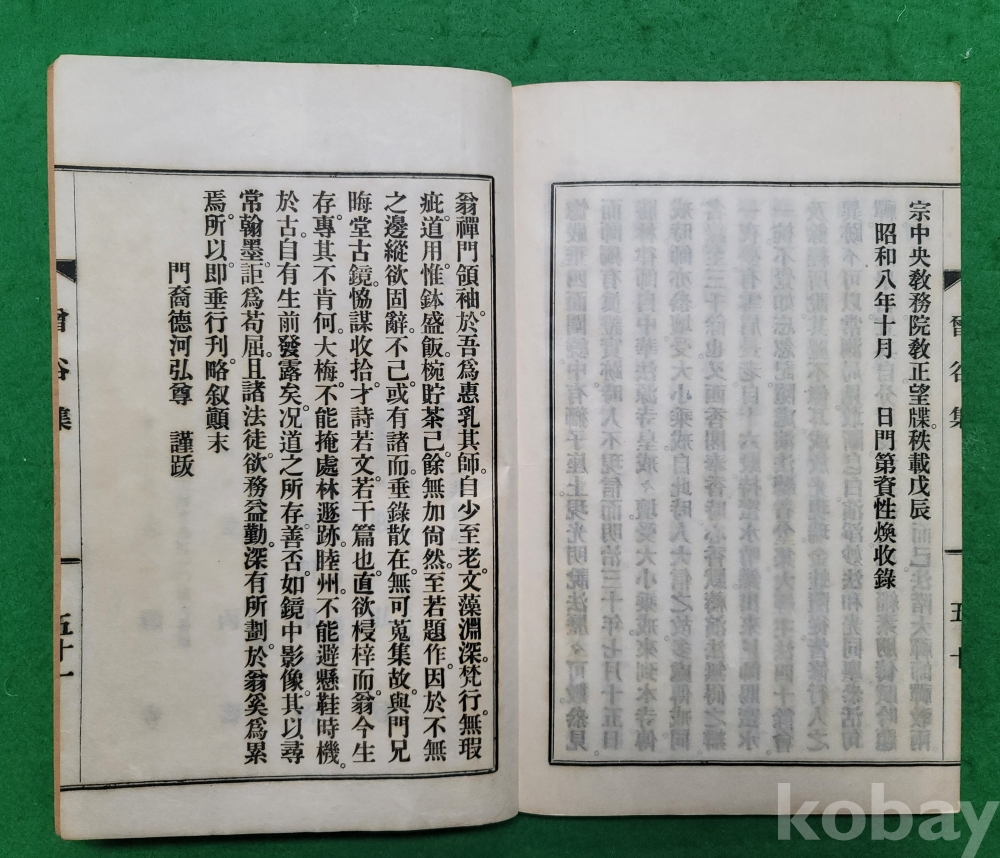 宗中央敎務院敎正望牒秩載戊辰
昭和八年十月 日門第資性煥收錄
曾谷集
五十
翁禪門領袖。於吾爲惠乳其師。自少至老。文藻淵深。梵行無瑕
疵。道用惟鉢盛飯。椀貯茶。己餘無加尙然。至若題作。因於不無
之邊。縱欲固辭。不己。或有諸。而垂錄散在。無可蒐集故。與門兄
晦堂古鏡。恊謀收拾。才詩若文。若干篇也。直欲梫梓。而翁今生
存。專其不肯何。大梅。不能掩處林遯跡。睦州。不能避懸鞋時機。
於古。自有生前發露矣。况道之所存善否。如鏡中影像。其以尋
常翰墨。詎爲苟屈。且諸法徒。欲務益勤。深有所劃。於翁奚爲累
焉。所以即垂行刊。略叙顚末
門裔德河弘尊 謹跋
曾谷集
五十一
kobay